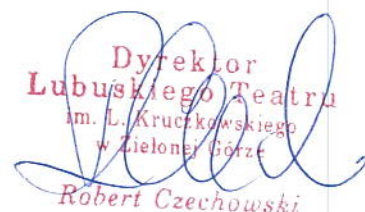 Dyrektor
Lubuskiego Teatru
im. L. Kruczkowskiego
w Zielonej Górze
Robert Czechowski